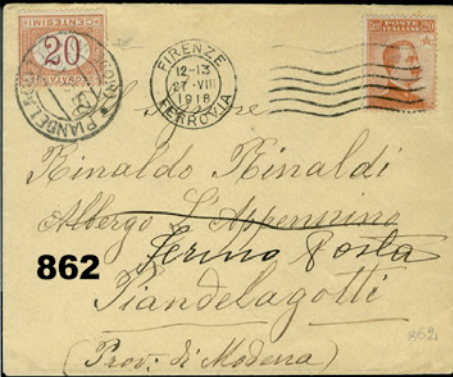 20
CENTESIMI
PIANDELAGOTTI
FIRENZE
12-13
27·VIII
1918
FERROVIA
POSTE
ITALIANE
20
Signore
Rinaldo Rinaldi
Albergo L'Appennino
Fermo Posta
862
Piandelagotti
(Prov: di Modena)